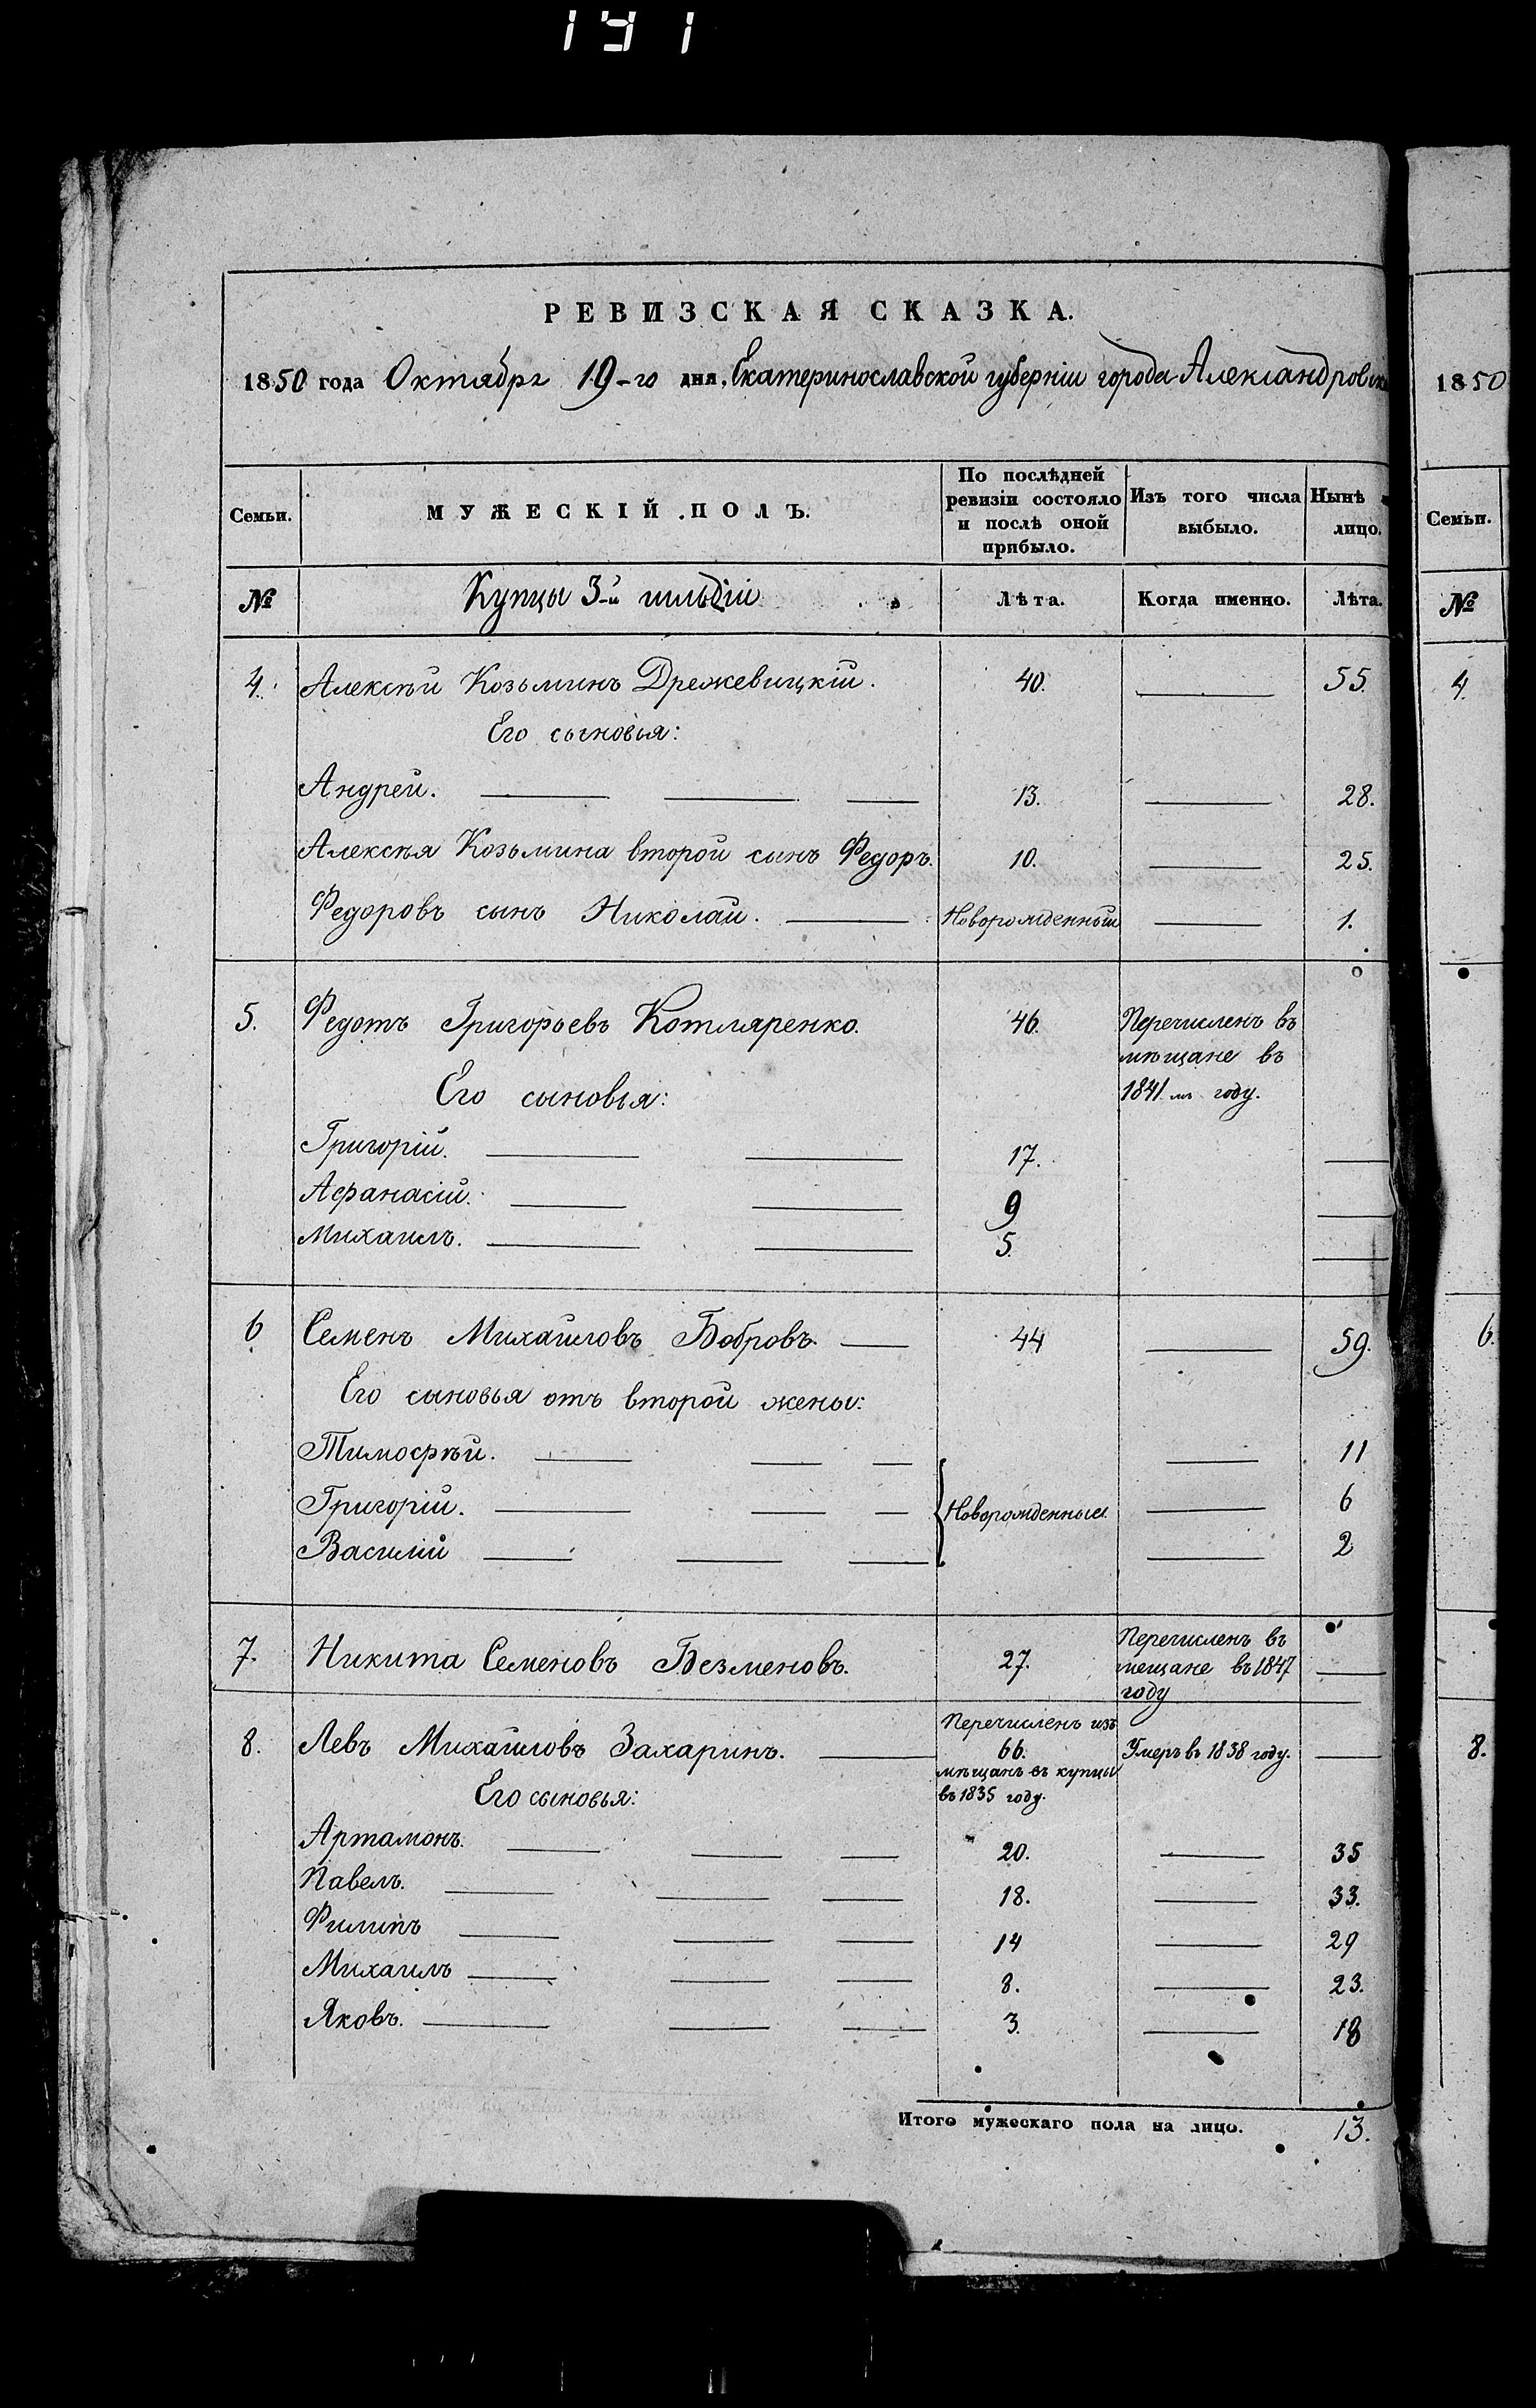 РЕВИЗСКАЯ СКАЗКА.
1850 года Октября 19-го дня, Екатеринославской губерніи города Александровска
Семьи. МУЖЕСКІЙ ПОЛЪ. По послѣдней ревизіи состояло и послѣ оной прибыло. Изъ того числа выбыло. Нынѣ лицо.
№ Купцы 3-й гильдіи Лѣта. Когда именно. Лѣта.
4. Алексѣй Козьминъ Дрежевицкій. 40. — 55.
Его сыновья:
Андрей. — — — 13. — 28.
Алексѣя Козьмина второй сынъ Федоръ. 10. — 25.
Федоровъ сынъ Николай. — Новорожденный — 1.
5. Федотъ Григорьевъ Котляренко. 46. Перечисленъ въ
мѣщане въ
Его сыновья: 1841-мъ году.
Григорій. — — 17. —
Афанасій. — — 9 —
Михаилъ. — — 5. —
6 Семенъ Михайловъ Бобровъ. — 44 — 59.
Его сыновья отъ второй жены:
Тимофѣй. — — — — 11
Григорій. — — — Новорожденные. — 6
Василій — — — — 2
7. Никита Семеновъ Безменовъ. 27. Перечисленъ въ
мещане въ 1847 —
году
Перечисленъ изъ
8. Левъ Михайловъ Захаринъ. — 66. Умеръ въ 1838 году. —
мѣщанъ въ купцы
Его сыновья: въ 1835 году.
Артамонъ. — — — 20. — 35
Павелъ. — — — 18. — 33.
Филипъ — — — 14 — 29
Михаилъ — — — 8. — 23.
Яковъ. — — — 3. — 18
Итого мужескаго пола на лицо. 13.
1850
Семьи.
№
4.
6.
8.